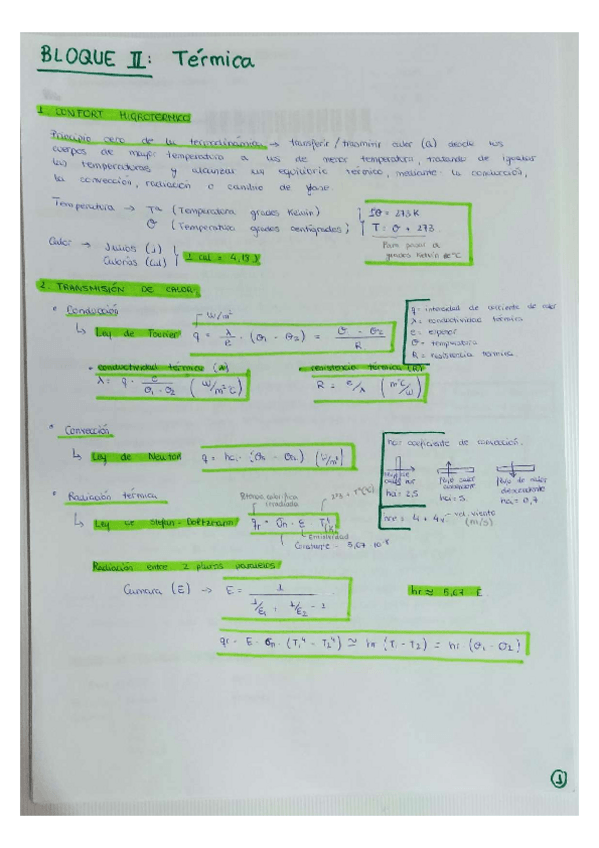 BLOQUE II: Térmica
1. CONFORT HIGROTERMICO
Principio cero de la termodinámica → transferir / transmitir calor (Q) desde los
cuerpos de mayor temperatura a los de menor temperatura, tratando de igualar
las temperaturas y alcanzar un equilibrio térmico, mediante la conducción,
la convección, radiación o cambio de fase.
Temperatura → Tª (Temperatura grados Kelvin)
θ (Temperatura grados centígrados)
1θ = 273 K
T = θ + 273
Para pasar de
grados Kelvin a °C
Calor → Julios (J)
Calorías (cal)
1 cal = 4,18 J
2. TRANSMISIÓN DE CALOR
• Conducción
W/m²
↳ Ley de Fourier q = λ/e · (θ1 - θ2) = θ1 - θ2 / R
q = intensidad de corriente de calor
λ = conductividad térmica
e = espesor
θ = temperatura
R = resistencia térmica
• conductividad térmica (λ)
λ = q · e / θ1 - θ2 (W/m²C)
• resistencia térmica (R)
R = e/λ (m²C/W)
• Convección
↳ Ley de Newton q = hc · (θn - θm) (W/m²)
hc = coeficiente de convección.
hci = 2,5
flujo calor
ascendente
hci = 5
flujo de calor
descendente
hci = 0,7
= 4 + 4v → vel. viento
(m/s)
• Radiación térmica
↳ Ley de Stefan-Boltzmann qr = σn · E · T⁴
273 + Tª(°C)
Emisividad
5,67 · 10⁻⁸
Radiación entre 2 planos paralelos
(E) → E = 1 / 1/E1 + 1/E2 - 1
hr ≈ 5,67 · E
qr = E · σn · (T1⁴ - T2⁴) ≃ hr (T1 - T2) = hr · (θ1 - θ2)
1